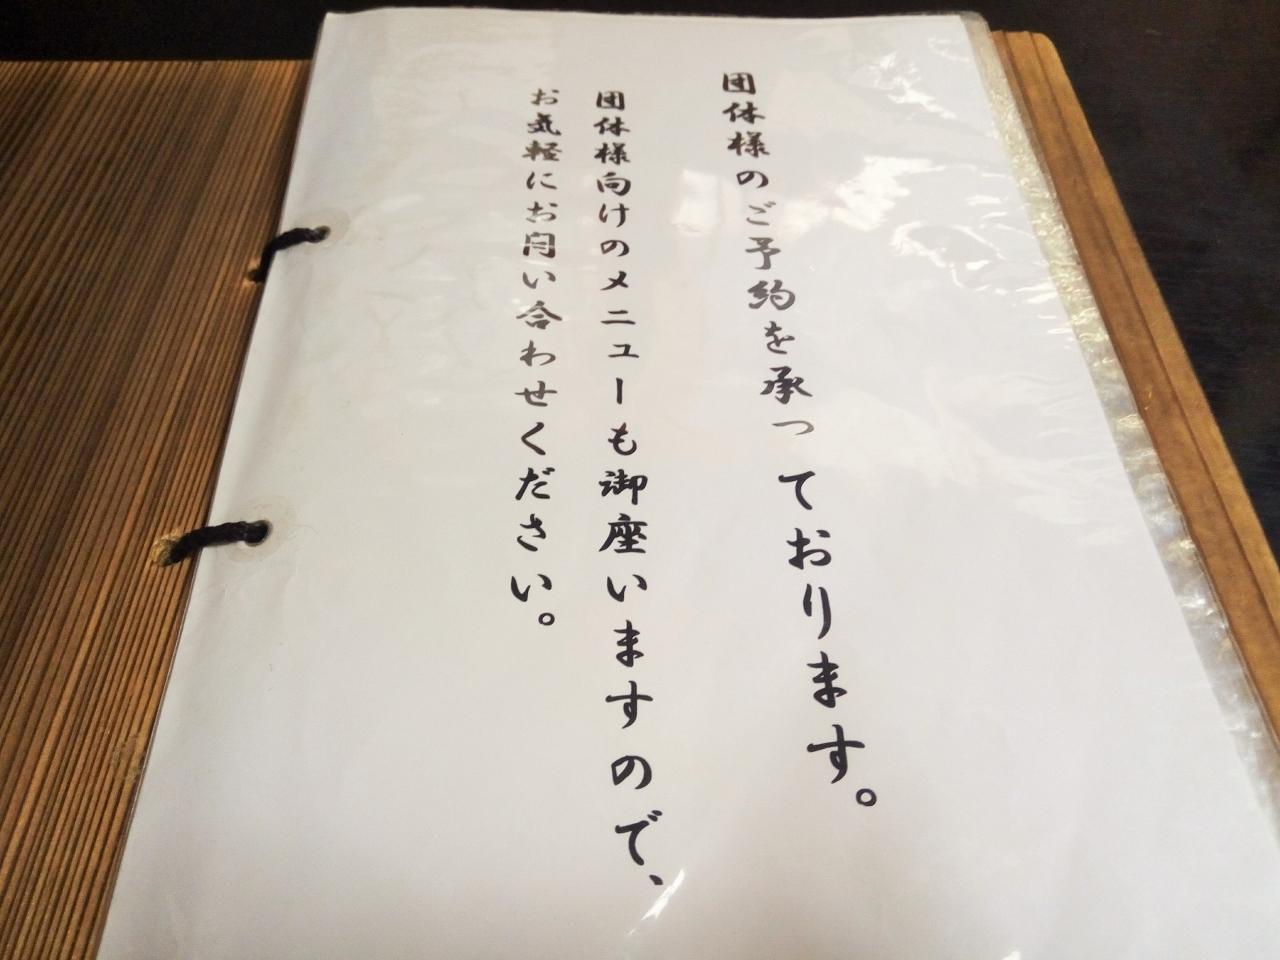 団体様のご予約を承っております。
団体様向けのメニューも御座いますので、
お気軽にお問い合わせください。